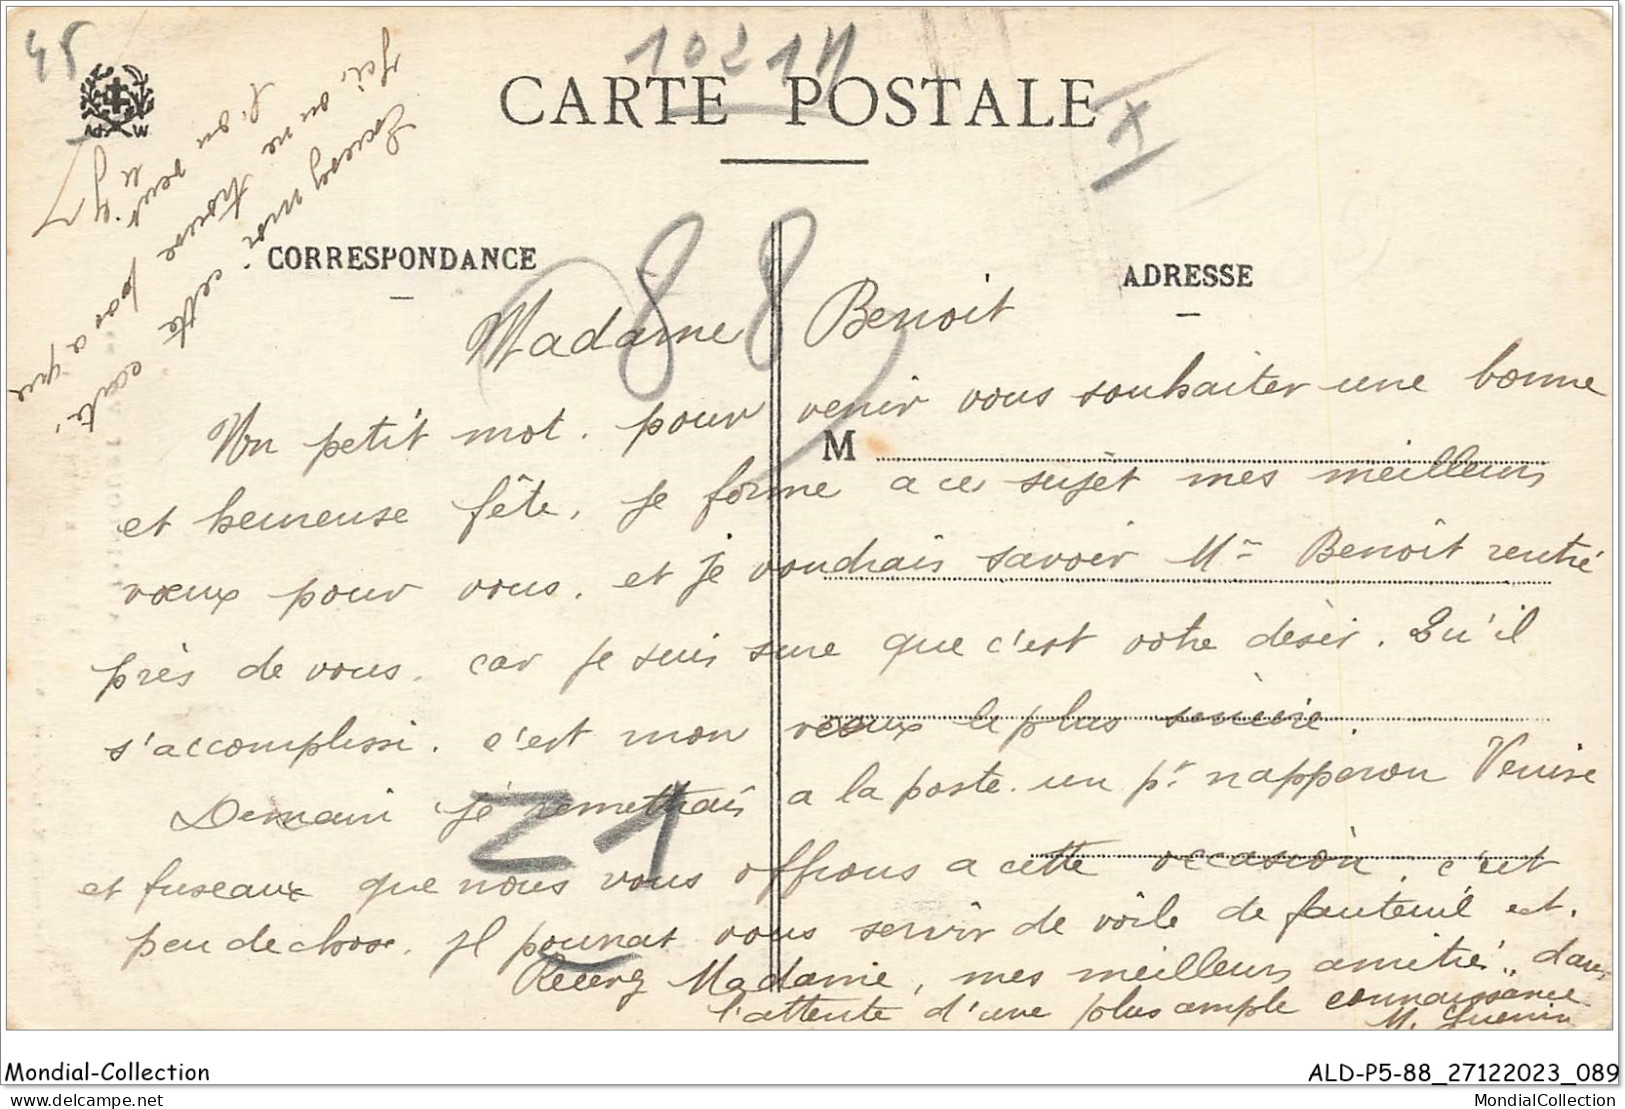 45
1021N
CARTE POSTALE
X
Ad W
CORRESPONDANCE
ADRESSE
88
Madame Benoit
Un petit mot. pour venir vous souhaiter une bonne
M
et heureuse fête, je forme a ce sujet mes meilleurs
vœux pour vous. et je voudrais savoir Mr Benoît rentré
près de vous. car je suis sure que c'est votre désir. Qu'il
s'accomplisse. c'est mon vœux le plus sincère.
Demain je remettrais a la poste. un pt napperon Venise
et fuseaux que nous vous offrons a cette occasion. c'est
peu de chose. Il pourrat vous servir de voile de fauteuil ect.
Z1
Recevez Madame, mes meilleurs amitié,, dans
l'attente d'une plus ample connaissance
M. Guenin
Excusez moi cette carte.
Ici, on ne trouve pas a que
l'on veut
Mondial-Collection
ALD-P5-88_27122023_089
www.delcampe.net
MondialCollection